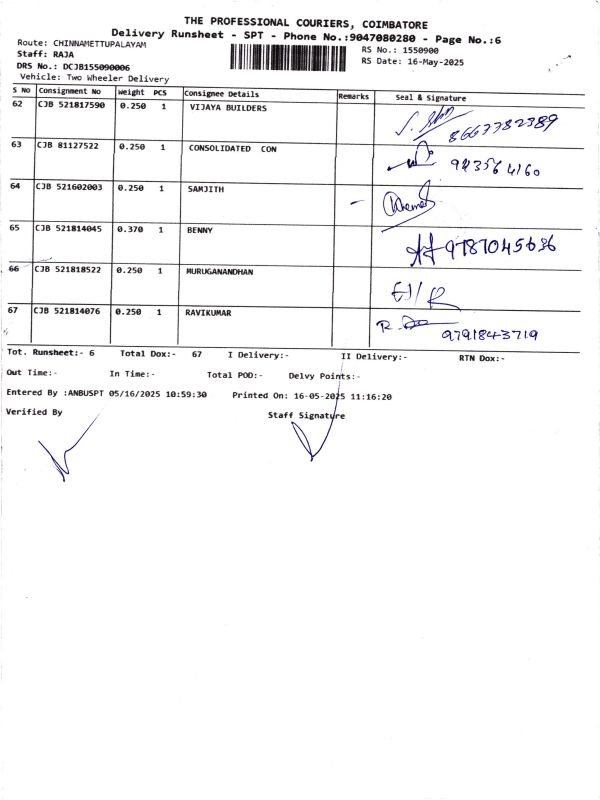 THE PROFESSIONAL COURIERS, COIMBATORE
Delivery Runsheet - SPT - Phone No.:9047080280 - Page No.:6
Route: CHINNAMETTUPALAYAM
RS No.: 1550900
Staff: RAJA
RS Date: 16-May-2025
DRS No.: DCJB155090006
Vehicle: Two Wheeler Delivery
S No Consignment No Weight PCS Consignee Details Remarks Seal & Signature
62 CJB 521817590 0.250 1 VIJAYA BUILDERS 8667782389
63 CJB 81127522 0.250 1 CONSOLIDATED CON
64 CJB 521602003 0.250 1 SAMJITH
65 CJB 521814045 0.370 1 BENNY
66 CJB 521818522 0.250 1 MURUGANANDHAN
67 CJB 521814076 0.250 1 RAVIKUMAR 9791843719
Tot. Runsheet:- 6 Total Dox:- 67 I Delivery:- II Delivery:- RTN Dox:-
Out Time:- In Time:- Total POD:- Delvy Points:-
Entered By :ANBUSPT 05/16/2025 10:59:30 Printed On: 16-05-2025 11:16:20
Verified By Staff Signature